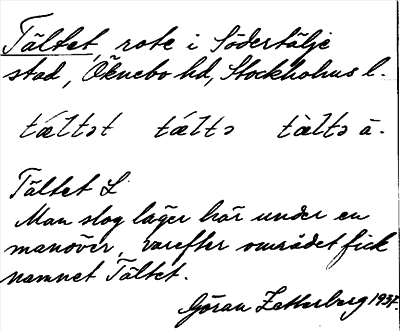 Tältet, rote i Södertälje
stad, Öknebo hd, Stockholms l.
tǽltət tǽltə tæ̀ltə ä-
Tältet L
Man slog läger här under en
manöver, varefter området fick
namnet Tältet.
Göran Zetterberg 1937.